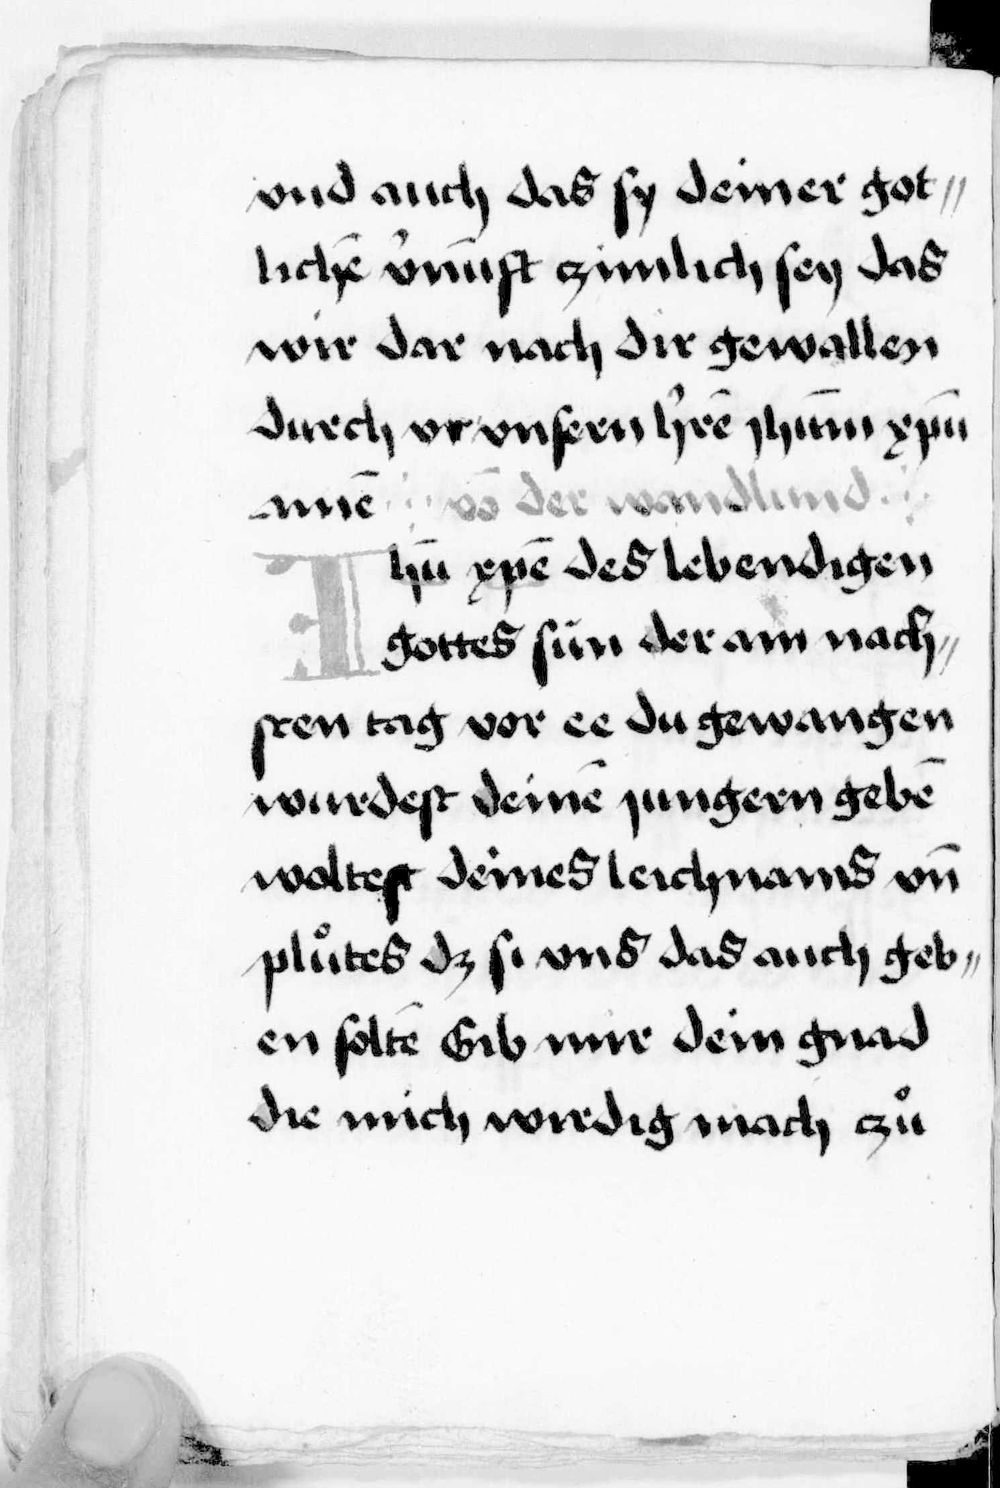 vnd auch das sy deiner got〃
lichē v̉nūft czimlich sey das
wir dar nach dir gewallen
durch vr vnsern h̉rē jhūm xpū
amē vō der wandlund
Ihū xpē des lebendigen
gottes sun der am nach〃
sten tag vor ee du gewangen
wurdest deinē jungern gebē
woltest deines leichnams vn̄
plůtes dz si vns das auch geb〃
en soltē Gib mir dein gnad
die mich wirdig mach czů